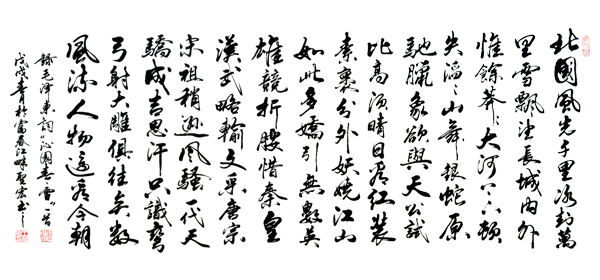 北國風光千里冰封萬
里雪飄望長城內外
惟餘莽々大河上下頓
失滔々山舞銀蛇原
馳臘象欲與天公試
比高須晴日看紅裝
素裹分外妖嬈江山
如此多嬌引無數英
雄競折腰惜秦皇
漢武略輸文采唐宗
宋祖稍遜風騷一代天
驕成吉思汗只識彎
弓射大雕俱往矣數
風流人物還看今朝
錄毛澤東詞沁園春雪一首
戊戌春月於富春江畔